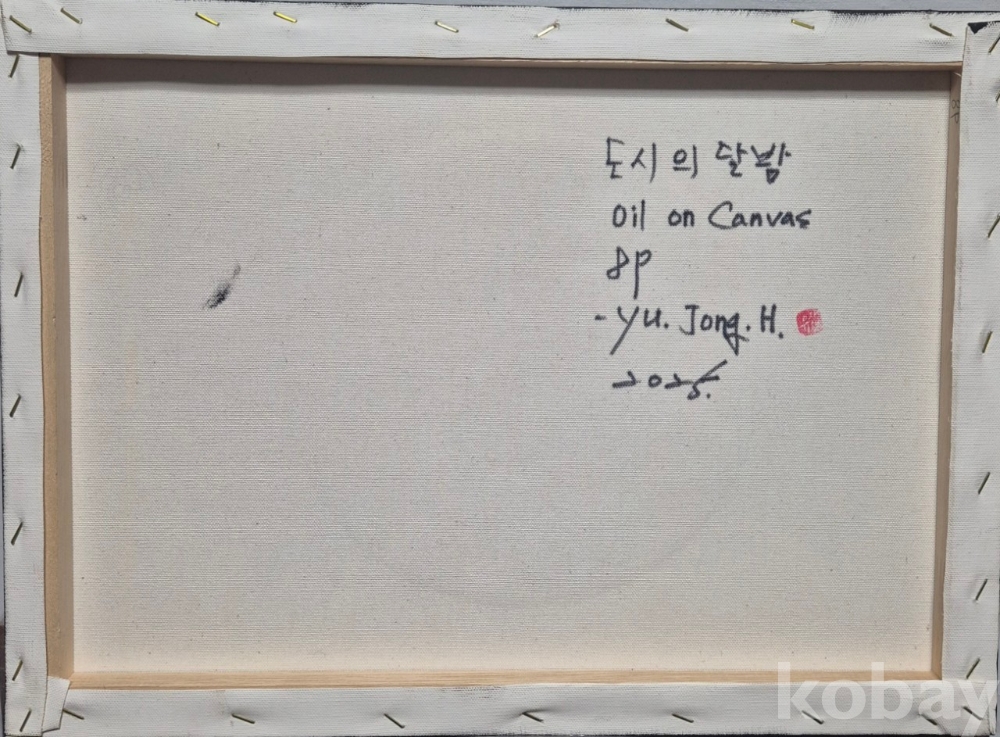 도시의 달밤
Oil on Canvas
8P
-YU. Jong. H.
2025.
kobay